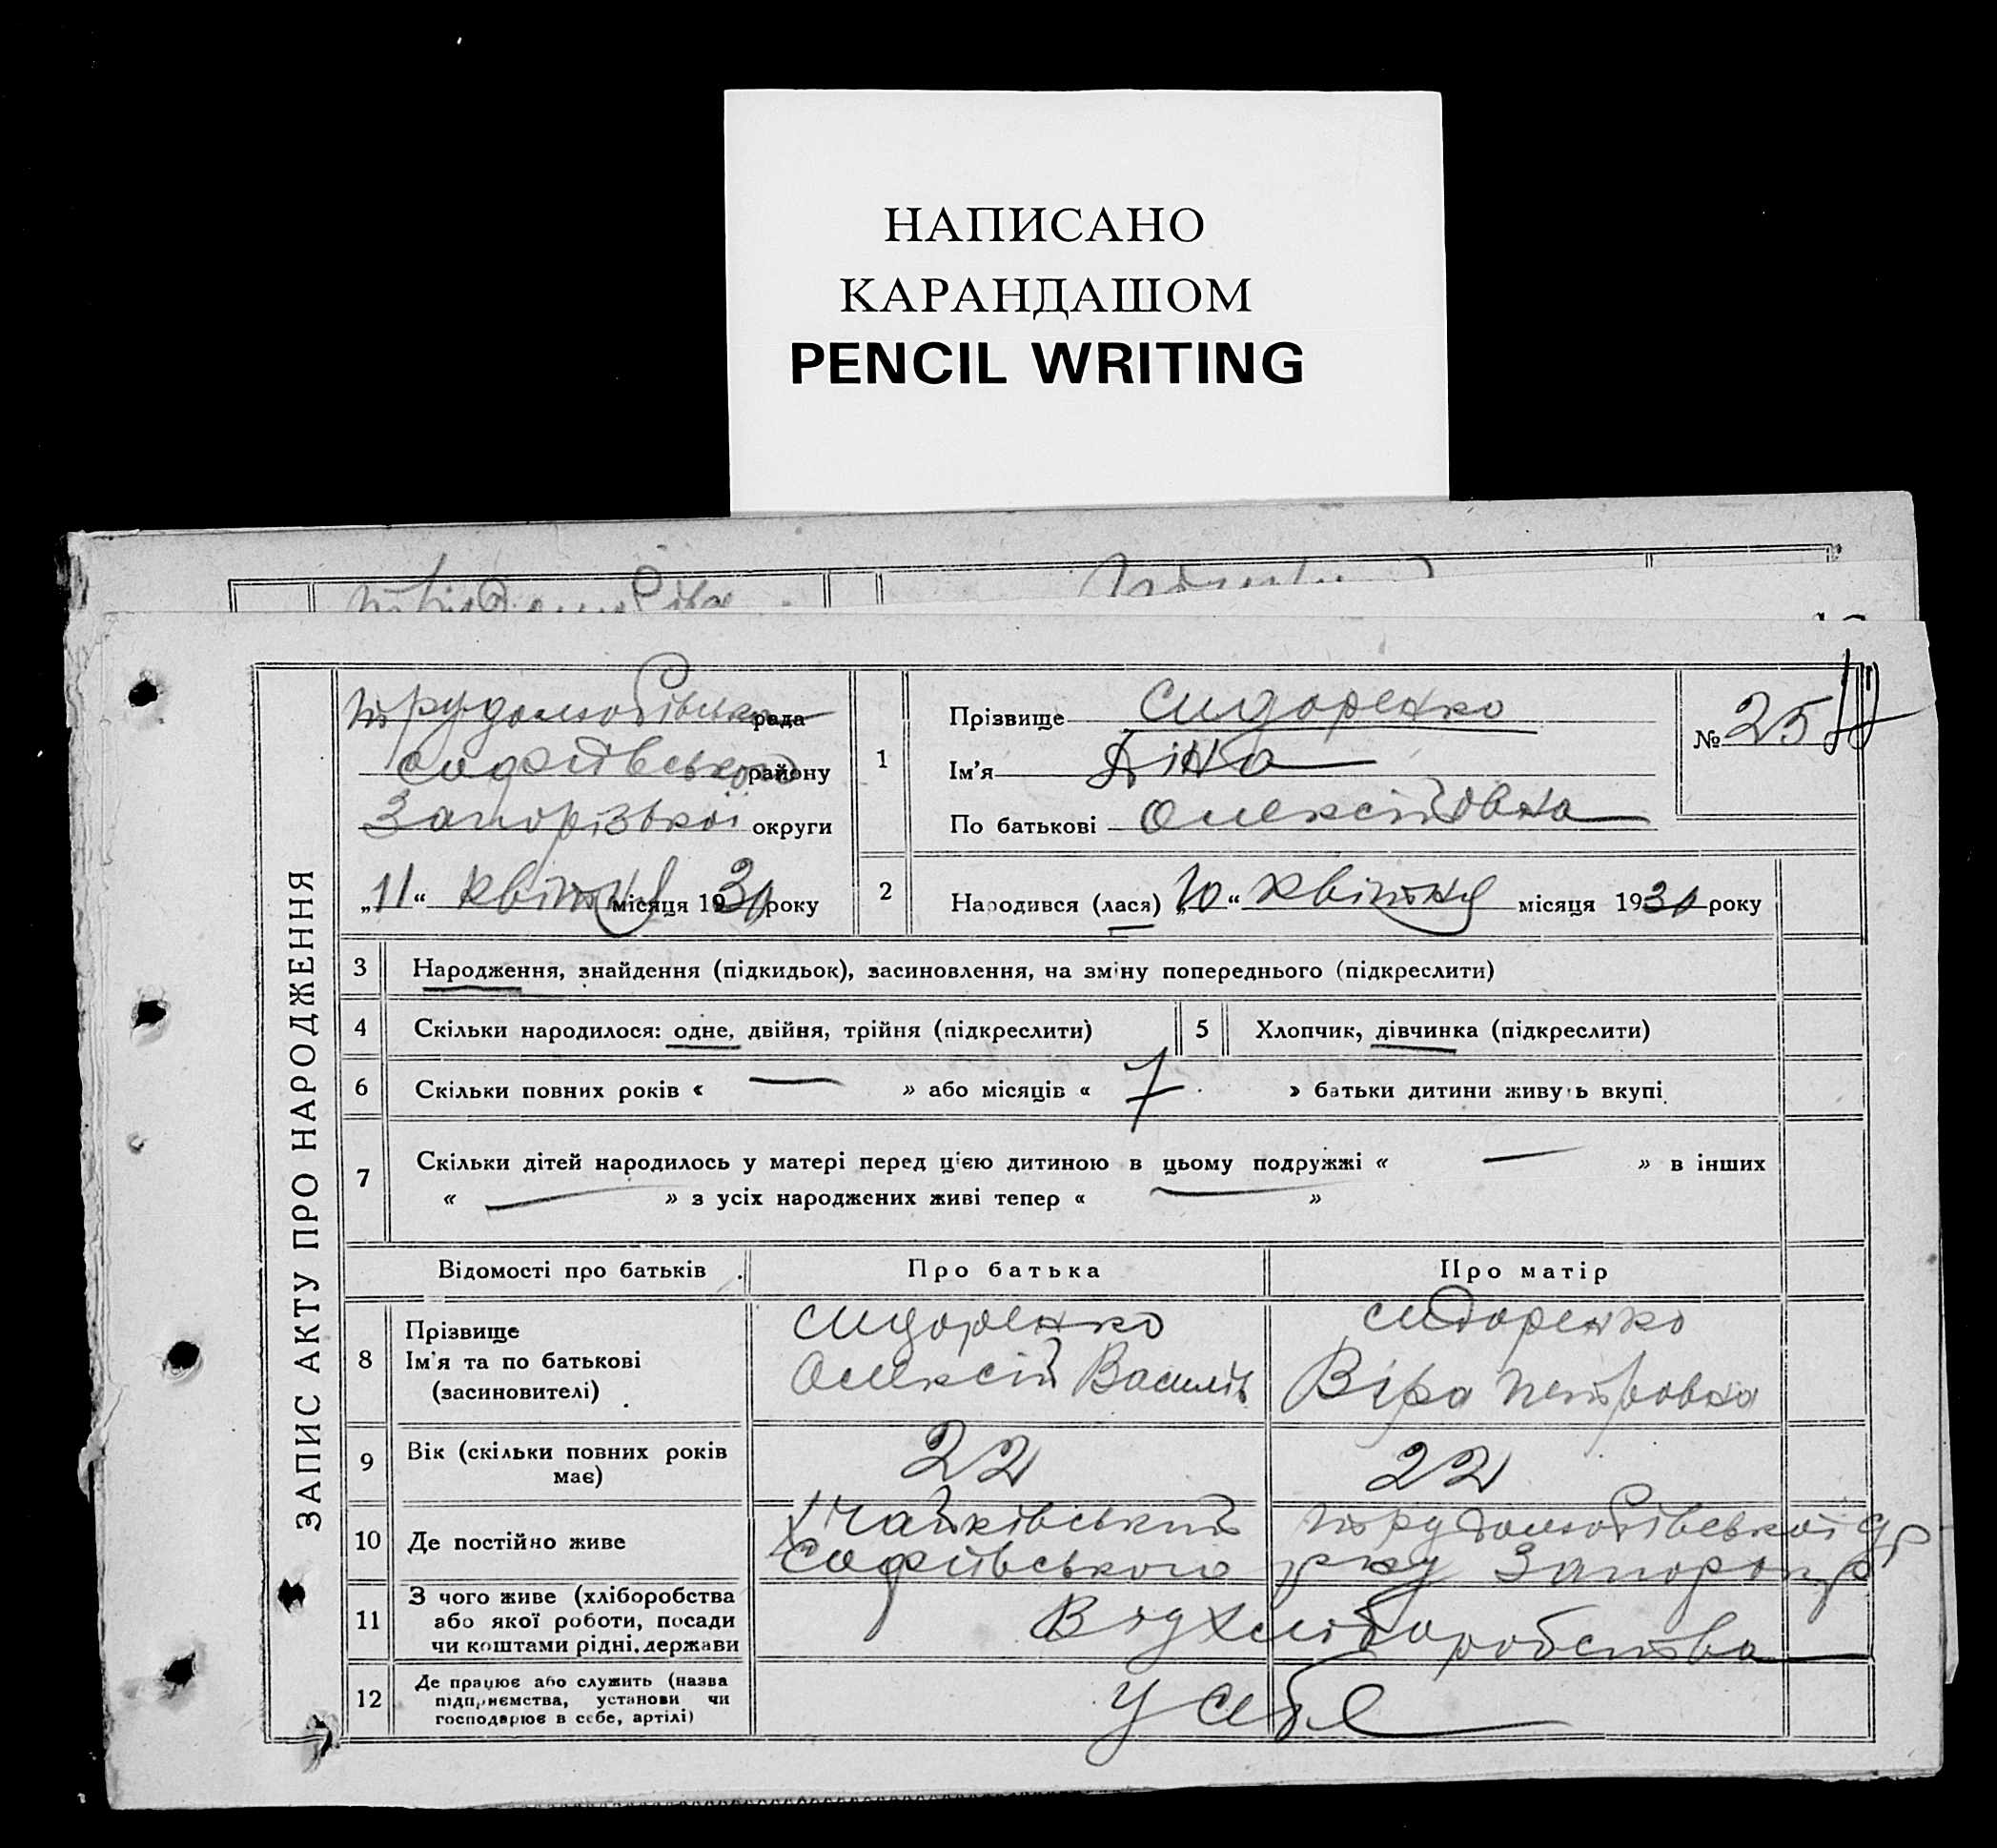 НАПИСАНО
КАРАНДАШОМ
PENCIL WRITING
ЗАПИС АКТУ ПРО НАРОДЖЕННЯ
Трудолюбівська рада
Софіївського району
Запорізької округи
„11“ квітня місяця 1930 року
1
Прізвище Сидоренко
Ім'я Діна
По батькові Олексійовна
№ 25
2 Народився (лася) „10“ квітня місяця 1930 року
3 Народження, знайдення (підкидьок), засиновлення, на зміну попереднього (підкреслити)
4 Скільки народилося: одне, двійня, трійня (підкреслити) 5 Хлопчик, дівчинка (підкреслити)
6 Скільки повних років « — » або місяців « 7 » батьки дитини живуть вкупі
7 Скільки дітей народилось у матері перед цією дитиною в цьому подружжі « — » в інших
« — » з усіх народжених живі тепер « — »
Відомості про батьків Про батька Про матір
8 Прізвище
Ім'я та по батькові
(засиновителі)
Сидоренко
Олексій Василів
Сидоренко
Віра Петровна
9 Вік (скільки повних років
має)
22 22
10 Де постійно живе
Чайківський Трудолюбівської
Софіївського р-ну Запороп
11 З чого живе (хліборобства
або якої роботи, посади
чи коштами рідні, держави
Від хліборобства
12 Де працює або служить (назва
підприємства, установи чи
господарює в себе, артілі)
у себе